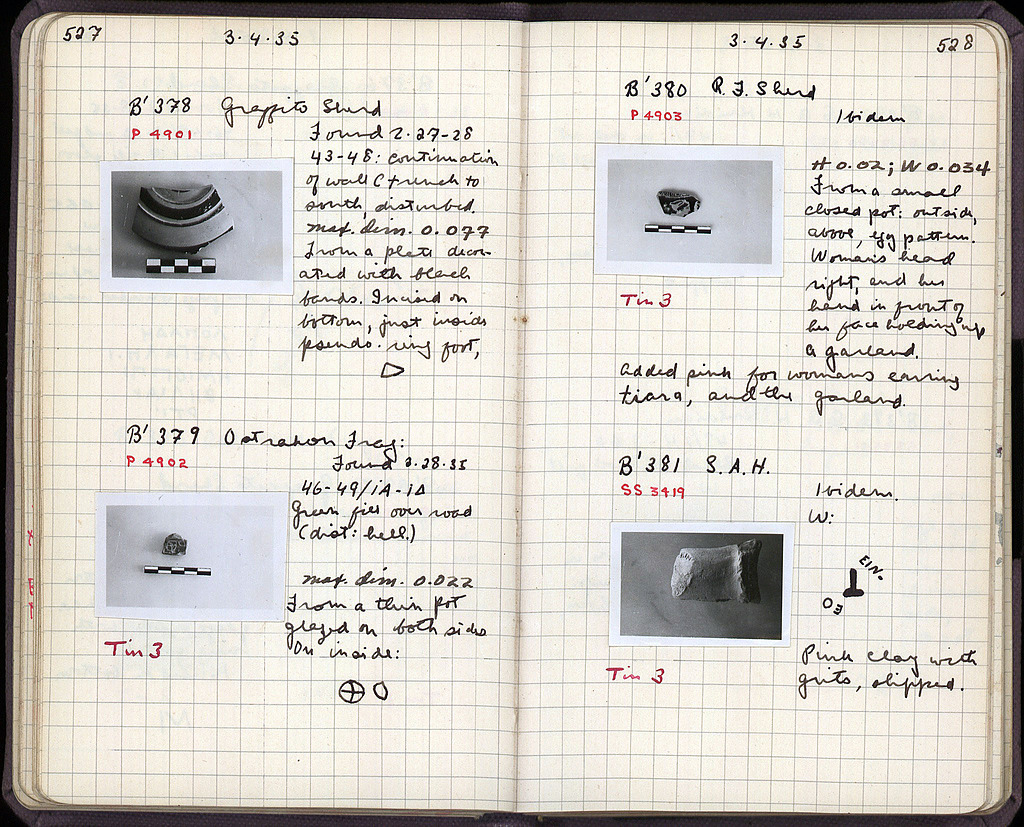 527
3·4·35
B' 378 Graffito Sherd
P 4901
Found 2·27-28
43-48: continuation
of wall C trench to
south, disturbed.
max. dim. 0.077
From a plate decor-
ated with black
bands. Incised on
bottom, just inside
pseudo-ring foot,
B' 379 Ostrakon Frag:
P 4902
Found 2·28·35
46-49/ΙΑ-ΙΔ
Green fill over road
(dist: hell.)
max. dim. 0.022
From a thin pot
glazed on both sides
On inside:
⊕ O
Tin 3
3·4·35
528
B' 380 R.F. Sherd
P 4903
Ibidem
H 0.02; W 0.034
From a small
closed pot: outside,
above, egg pattern.
Woman's head
right, and her
hand in front of
her face holding up
a garland.
Added pink for womans earring
tiara, and the garland.
Tin 3
B' 381 S.A.H.
SS 3419
Ibidem.
W:
ΕΙΝ-
ΕΟ
Pink clay with
grits, slipped.
Tin 3